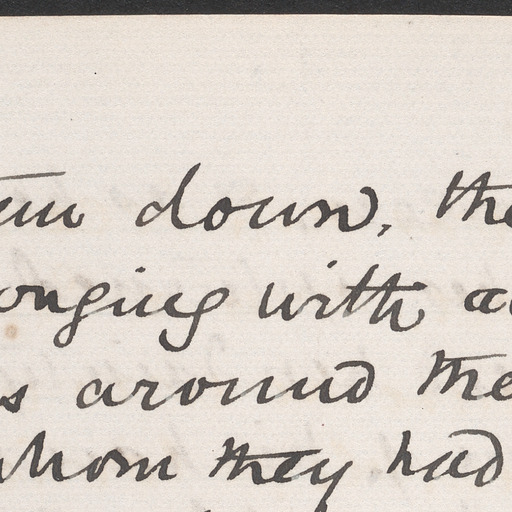 down, the
onging with a
s around the
whom they had